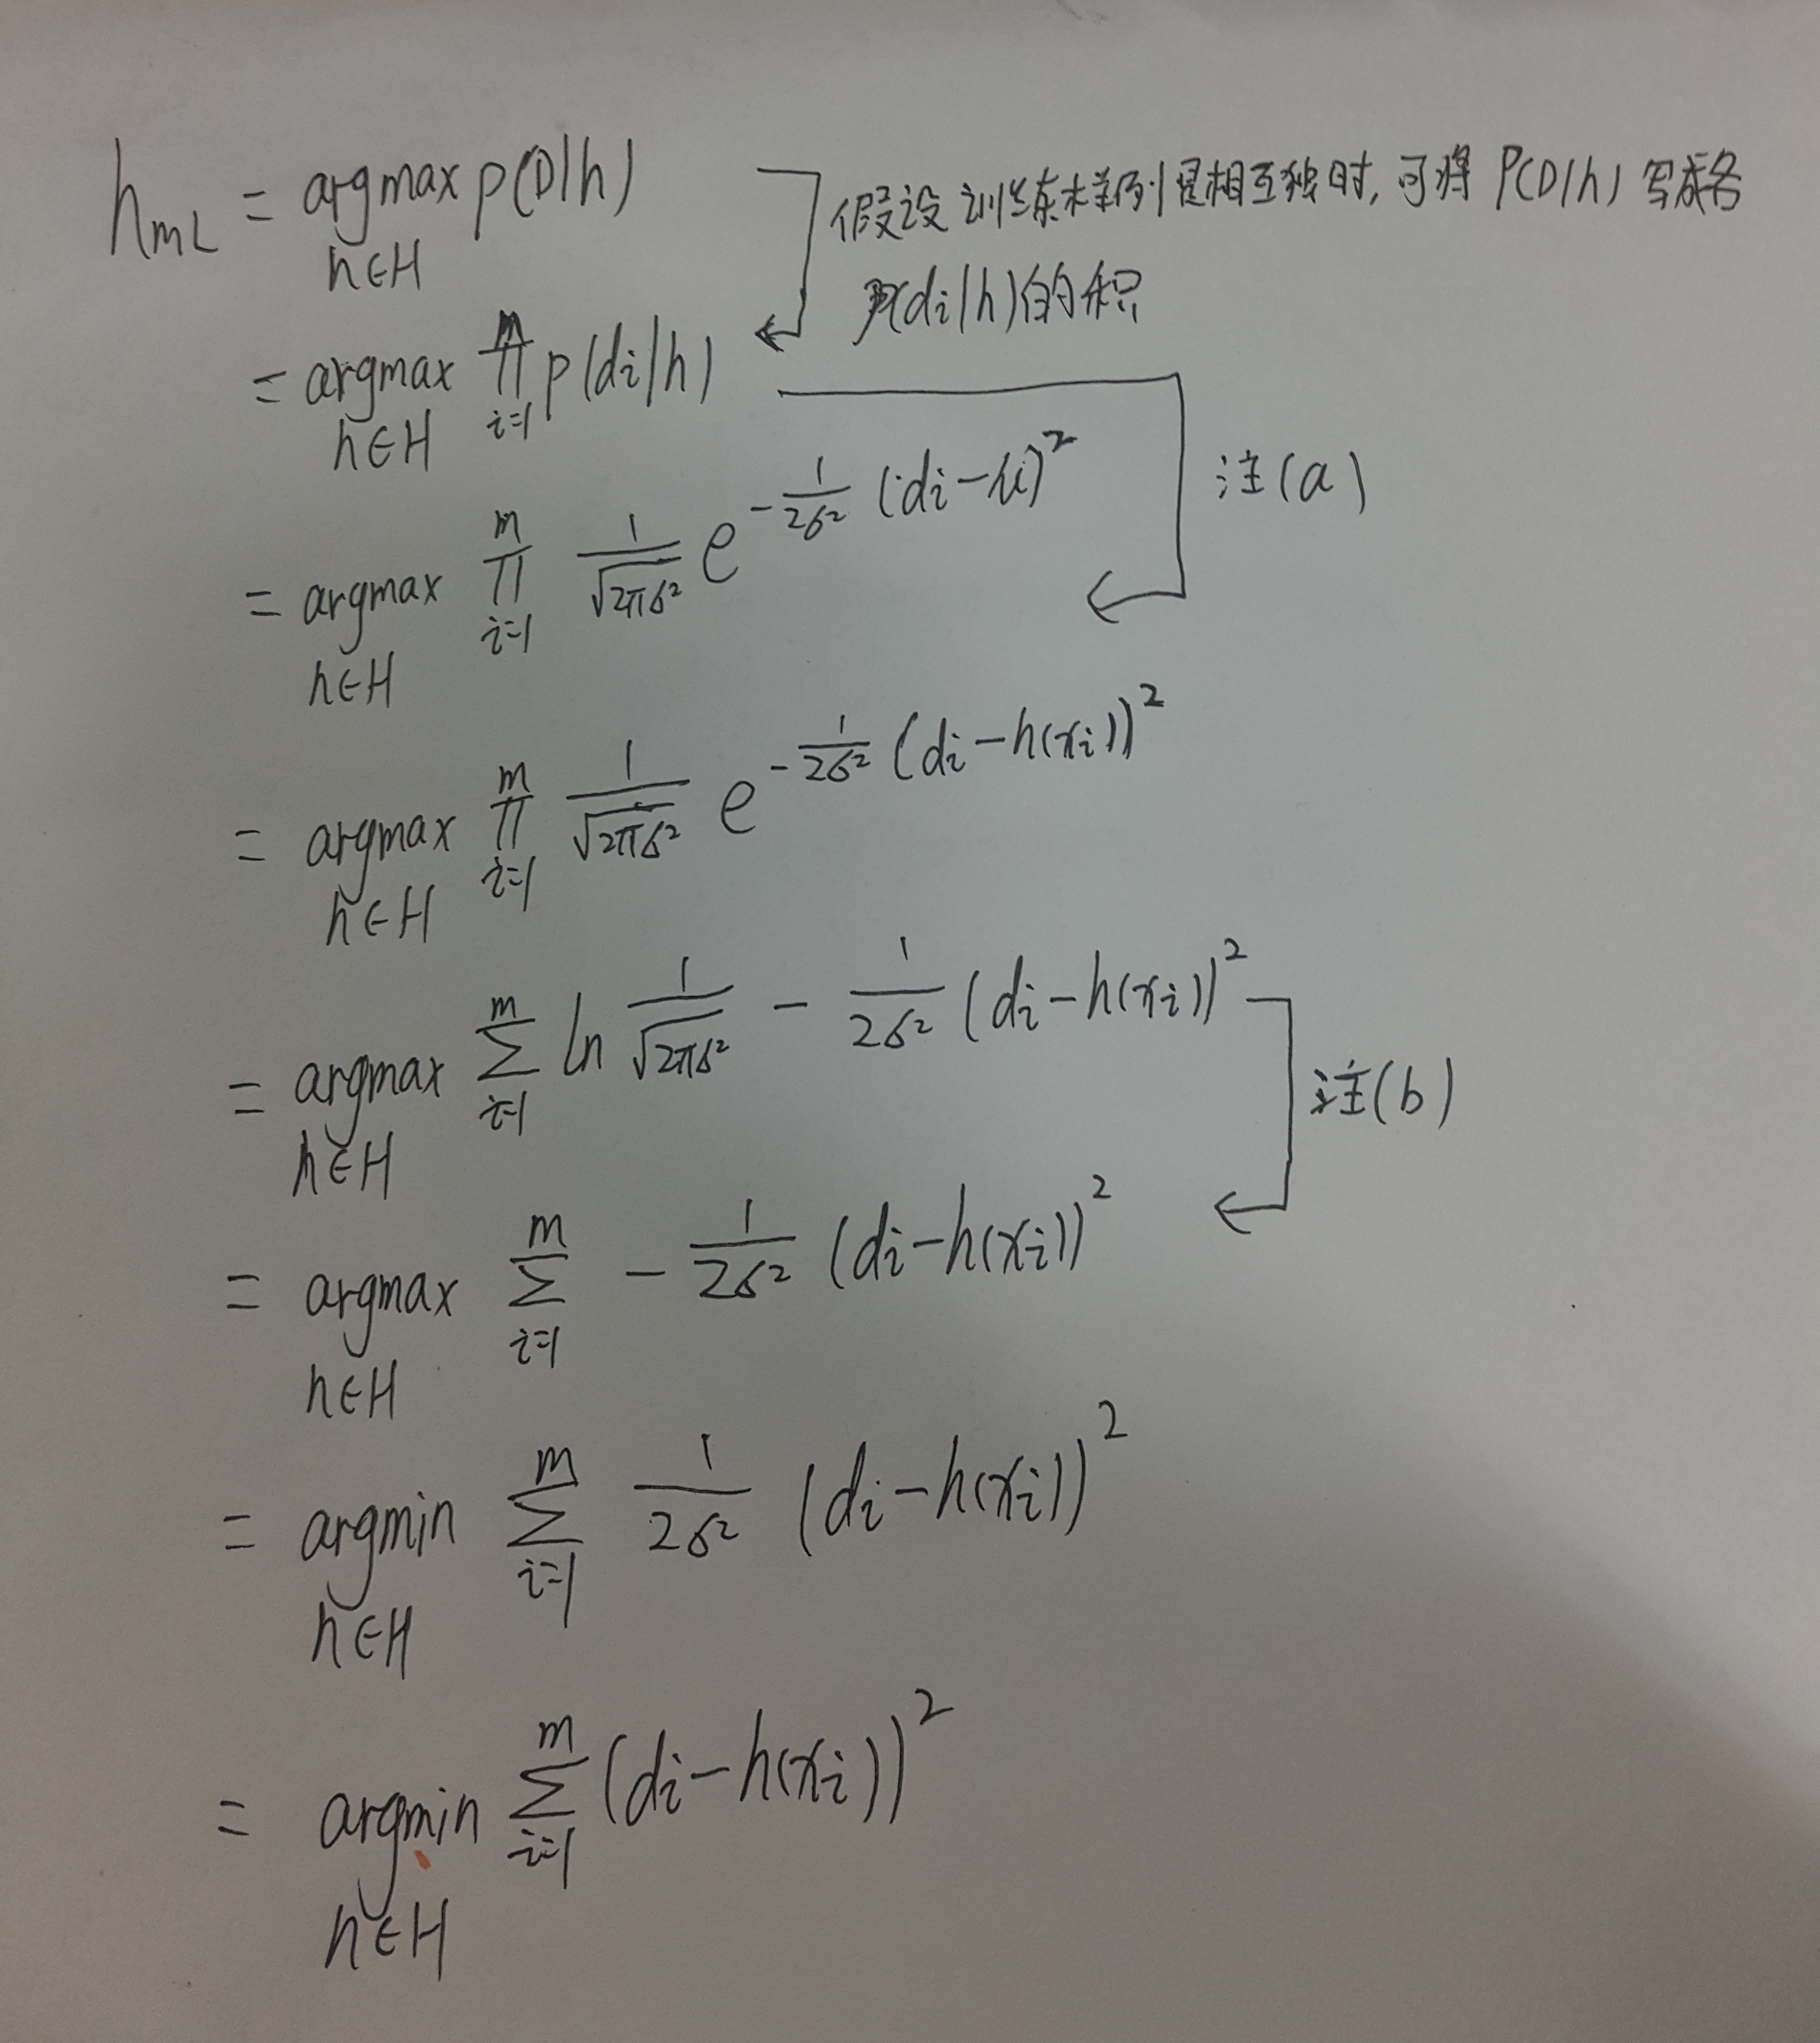 h_{ML} = argmax_{h∈H} p(D|h)
假设训练样例是相互独时,可将 P(D|h) 写成各
p(di|h)的积
= argmax_{h∈H} ∏_{i=1}^{m} p(di|h)
注(a)
= argmax_{h∈H} ∏_{i=1}^{m} \frac{1}{\sqrt{2πσ²}} e^{-\frac{1}{2σ²}(di-μ)²}
= argmax_{h∈H} ∏_{i=1}^{m} \frac{1}{\sqrt{2πσ²}} e^{-\frac{1}{2σ²}(di-h(xi))²}
= argmax_{h∈H} ∑_{i=1}^{m} ln \frac{1}{\sqrt{2πσ²}} - \frac{1}{2σ²}(di-h(xi))²
注(b)
= argmax_{h∈H} ∑_{i=1}^{m} -\frac{1}{2σ²}(di-h(xi))²
= argmin_{h∈H} ∑_{i=1}^{m} \frac{1}{2σ²}(di-h(xi))²
= argmin_{h∈H} ∑_{i=1}^{m} (di-h(xi))²